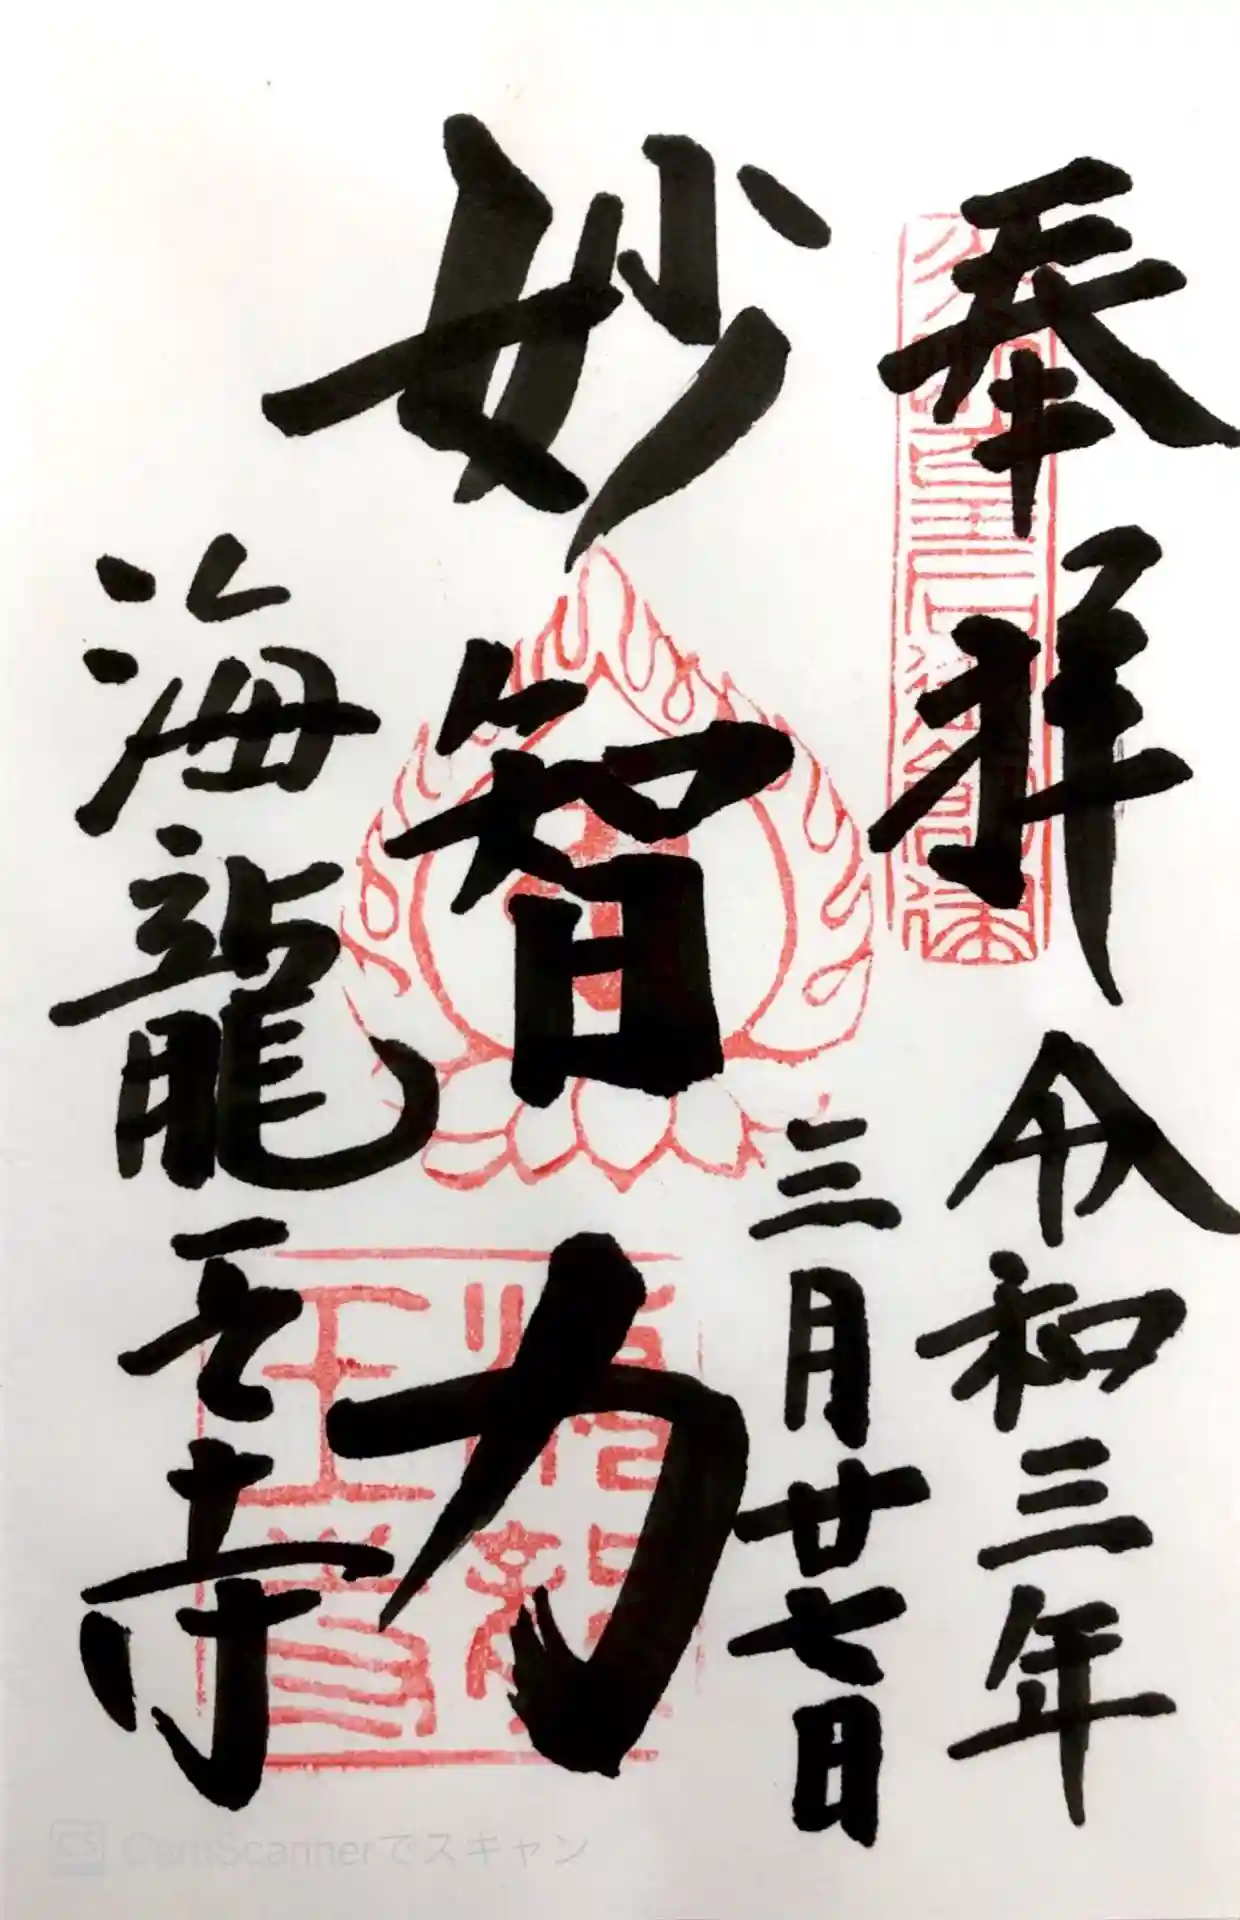 奉拝
令和三年
三月廿七日
妙智力
海龍王寺
CamScannerでスキャン